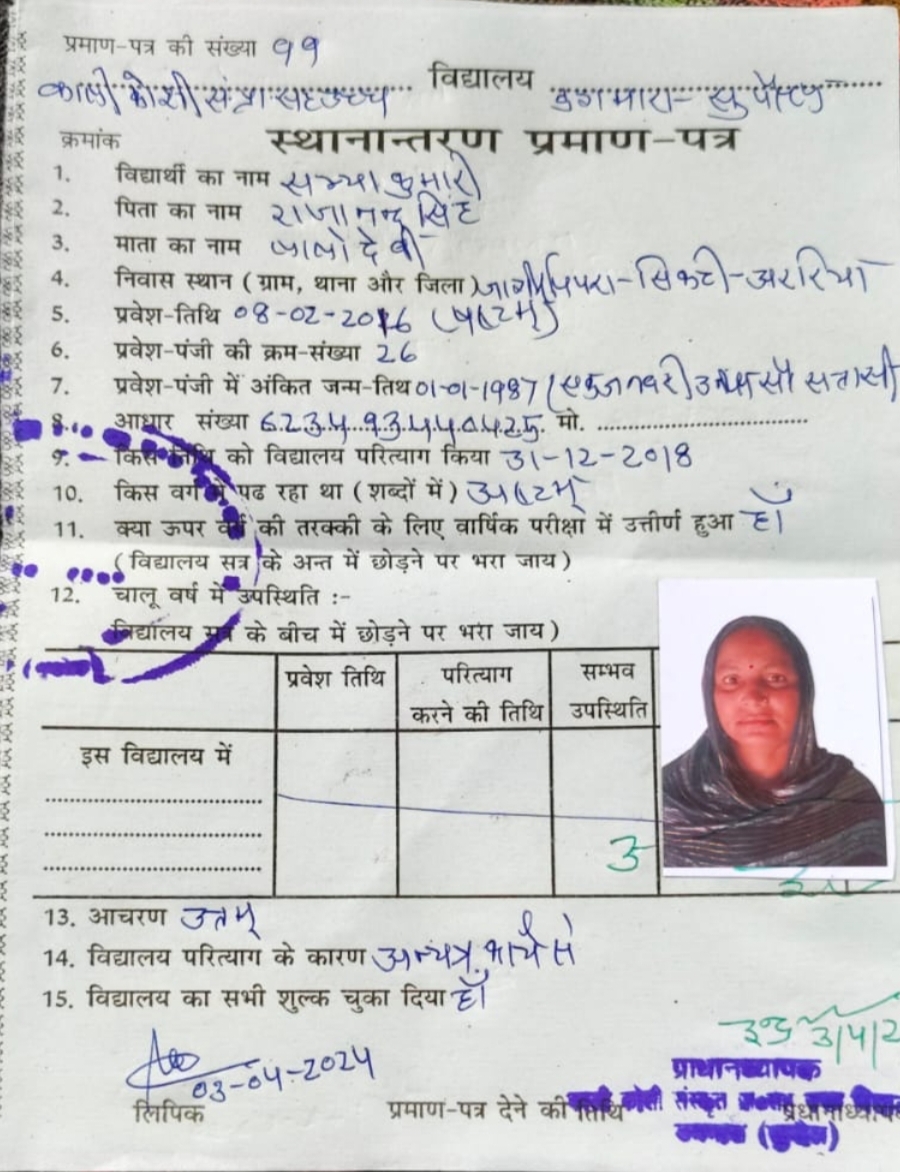 प्रमाण-पत्र की संख्या 99
विद्यालय
क्रमांक स्थानान्तरण प्रमाण-पत्र
1. विद्यार्थी का नाम कुमारी
2. पिता का नाम राजानन्द सिंह
3. माता का नाम देवी
4. निवास स्थान ( ग्राम, थाना और जिला ) जागीर पिपरा-सिकटी-अररिया
5. प्रवेश-तिथि 08-02-2016
6. प्रवेश-पंजी की क्रम-संख्या 26
7. प्रवेश-पंजी में अंकित जन्म-तिथ 01-01-1987 (एक जनवरी) सतासी
8. आधार संख्या 6234 9344 0425 मो.
9. किस तिथि को विद्यालय परित्याग किया 31-12-2018
10. किस वर्ग में पढ रहा था ( शब्दों में ) अष्टम्
11. क्या ऊपर वर्ग की तरक्की के लिए वार्षिक परीक्षा में उत्तीर्ण हुआ हाँ
( विद्यालय सत्र के अन्त में छोड़ने पर भरा जाय )
12. चालू वर्ष में उपस्थिति :-
विद्यालय सत्र के बीच में छोड़ने पर भरा जाय )
प्रवेश तिथि परित्याग सम्भव
करने की तिथि उपस्थिति
इस विद्यालय में
13. आचरण उत्तम्
14. विद्यालय परित्याग के कारण अन्यत्र
15. विद्यालय का सभी शुल्क चुका दिया हाँ
03-04-2024
प्राधानध्यापक
लिपिक प्रमाण-पत्र देने की तिथि